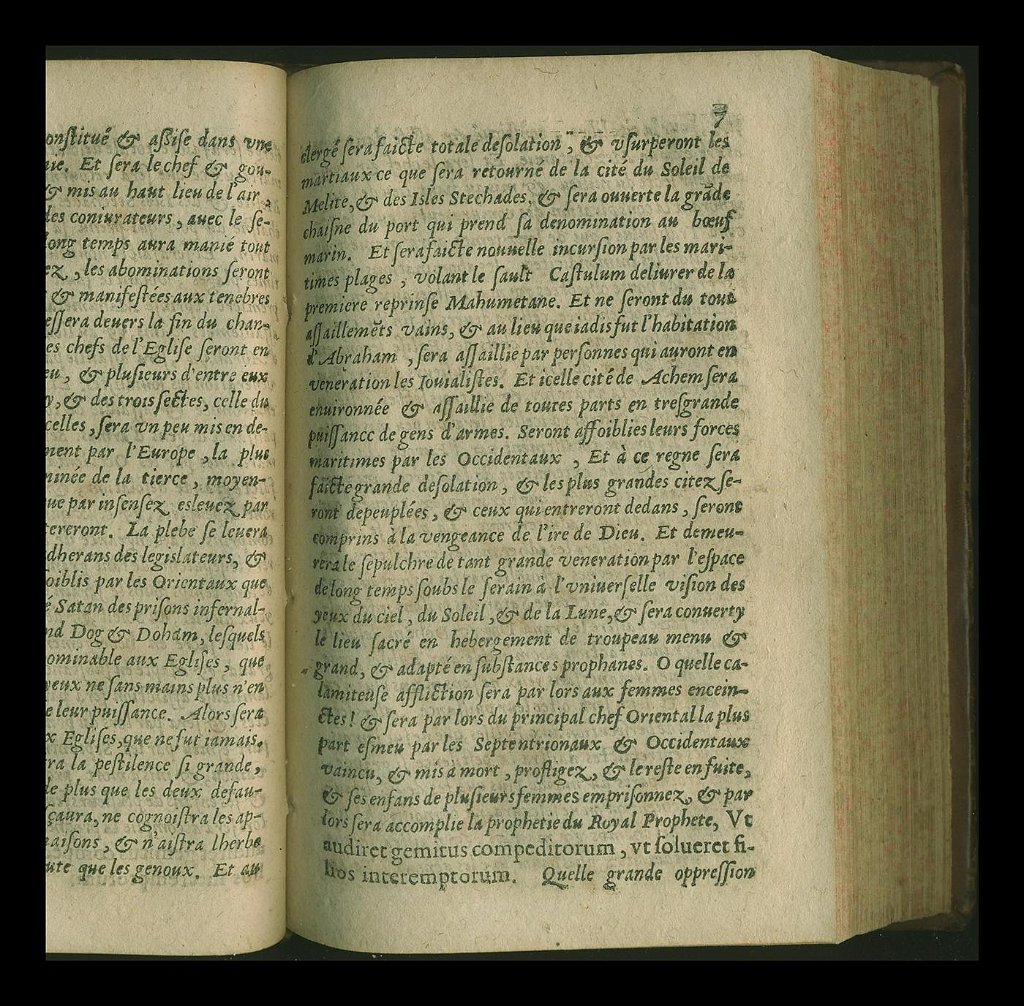 onſtitué & aſsiſe dans vne
nie. Et ſera le chef & gou-
& mis au haut lieu de l'air,
des coniurateurs, auec le ſe-
ong temps aura manié tout
ez, les abominations ſeront
& manifeſtées aux tenebres
eſſera deuers la fin du chan-
es chefs de l'Egliſe ſeront en
eu, & pluſieurs d'entre eux
y, & des trois ſectes, celle du
celles, ſera vn peu mis en de-
ment par l'Europe, la plus
minée de la tierce, moyen-
ue par inſenſez eſleuez par
tereront. La plebe ſe leuera
dherans des legislateurs, &
oiblis par les Orientaux que
é Satan des priſons infernal-
nd Dog & Doham, leſquels
ominable aux Egliſes, que
yeux ne ſans mains plus n'en
e leur puiſſance. Alors ſera
x Egliſes, que ne fut iamais.
ra la peſtilence ſi grande,
de plus que les deux defau-
çaura, ne cognoiſtra les ap-
aiſons, & n'aiſtra lherbe
ute que les genoux. Et au
7
clergé ſera faicte totale deſolation, & vſurperont les
martiaux ce que ſera retourné de la cité du Soleil de
Melite, & des Isles Stechades, & ſera ouuerte la grãde
chaiſne du port qui prend ſa denomination au bœuf
marin. Et ſera faicte nouuelle incurſion par les mari-
times plages, volant le ſault Caſtulum deliurer de la
premiere reprinſe Mahumetane. Et ne ſeront du tout
aſſaillemẽts vains, & au lieu que iadis fut l'habitation
d'Abraham, ſera aſſaillie par perſonnes qui auront en
veneration les Iouialiſtes. Et icelle cité de Achem ſera
enuironnée & aſſaillie de toutes parts en treſgrande
puiſſance de gens d'armes. Seront affoiblies leurs forces
maritimes par les Occidentaux, Et à ce regne ſera
faicte grande deſolation, & les plus grandes citez ſe-
ront depeuplées, & ceux qui entreront dedans, ſeront
comprins à la vengeance de l'ire de Dieu. Et demeu-
rera le ſepulchre de tant grande veneration par l'eſpace
de long temps ſoubs le ſerain à l'vniuerſelle viſion des
yeux du ciel, du Soleil, & de la Lune, & ſera conuerty
le lieu ſacré en hebergement de troupeau menu &
grand, & adapté en ſubſtances prophanes. O quelle ca-
lamiteuſe affliction ſera par lors aux femmes encein-
ctes! & ſera par lors du principal chef Oriental la plus
part eſmeu par les Septentrionaux & Occidentaux
vaincu, & mis a mort, profligez, & le reſte en fuite,
& ſes enfans de pluſieurs femmes empriſonnez, & par
lors ſera accomplie la prophetie du Royal Prophete, Vt
audiret gemitus compeditorum, vt ſolueret fi-
lios interemptorum. Quelle grande oppreſſion